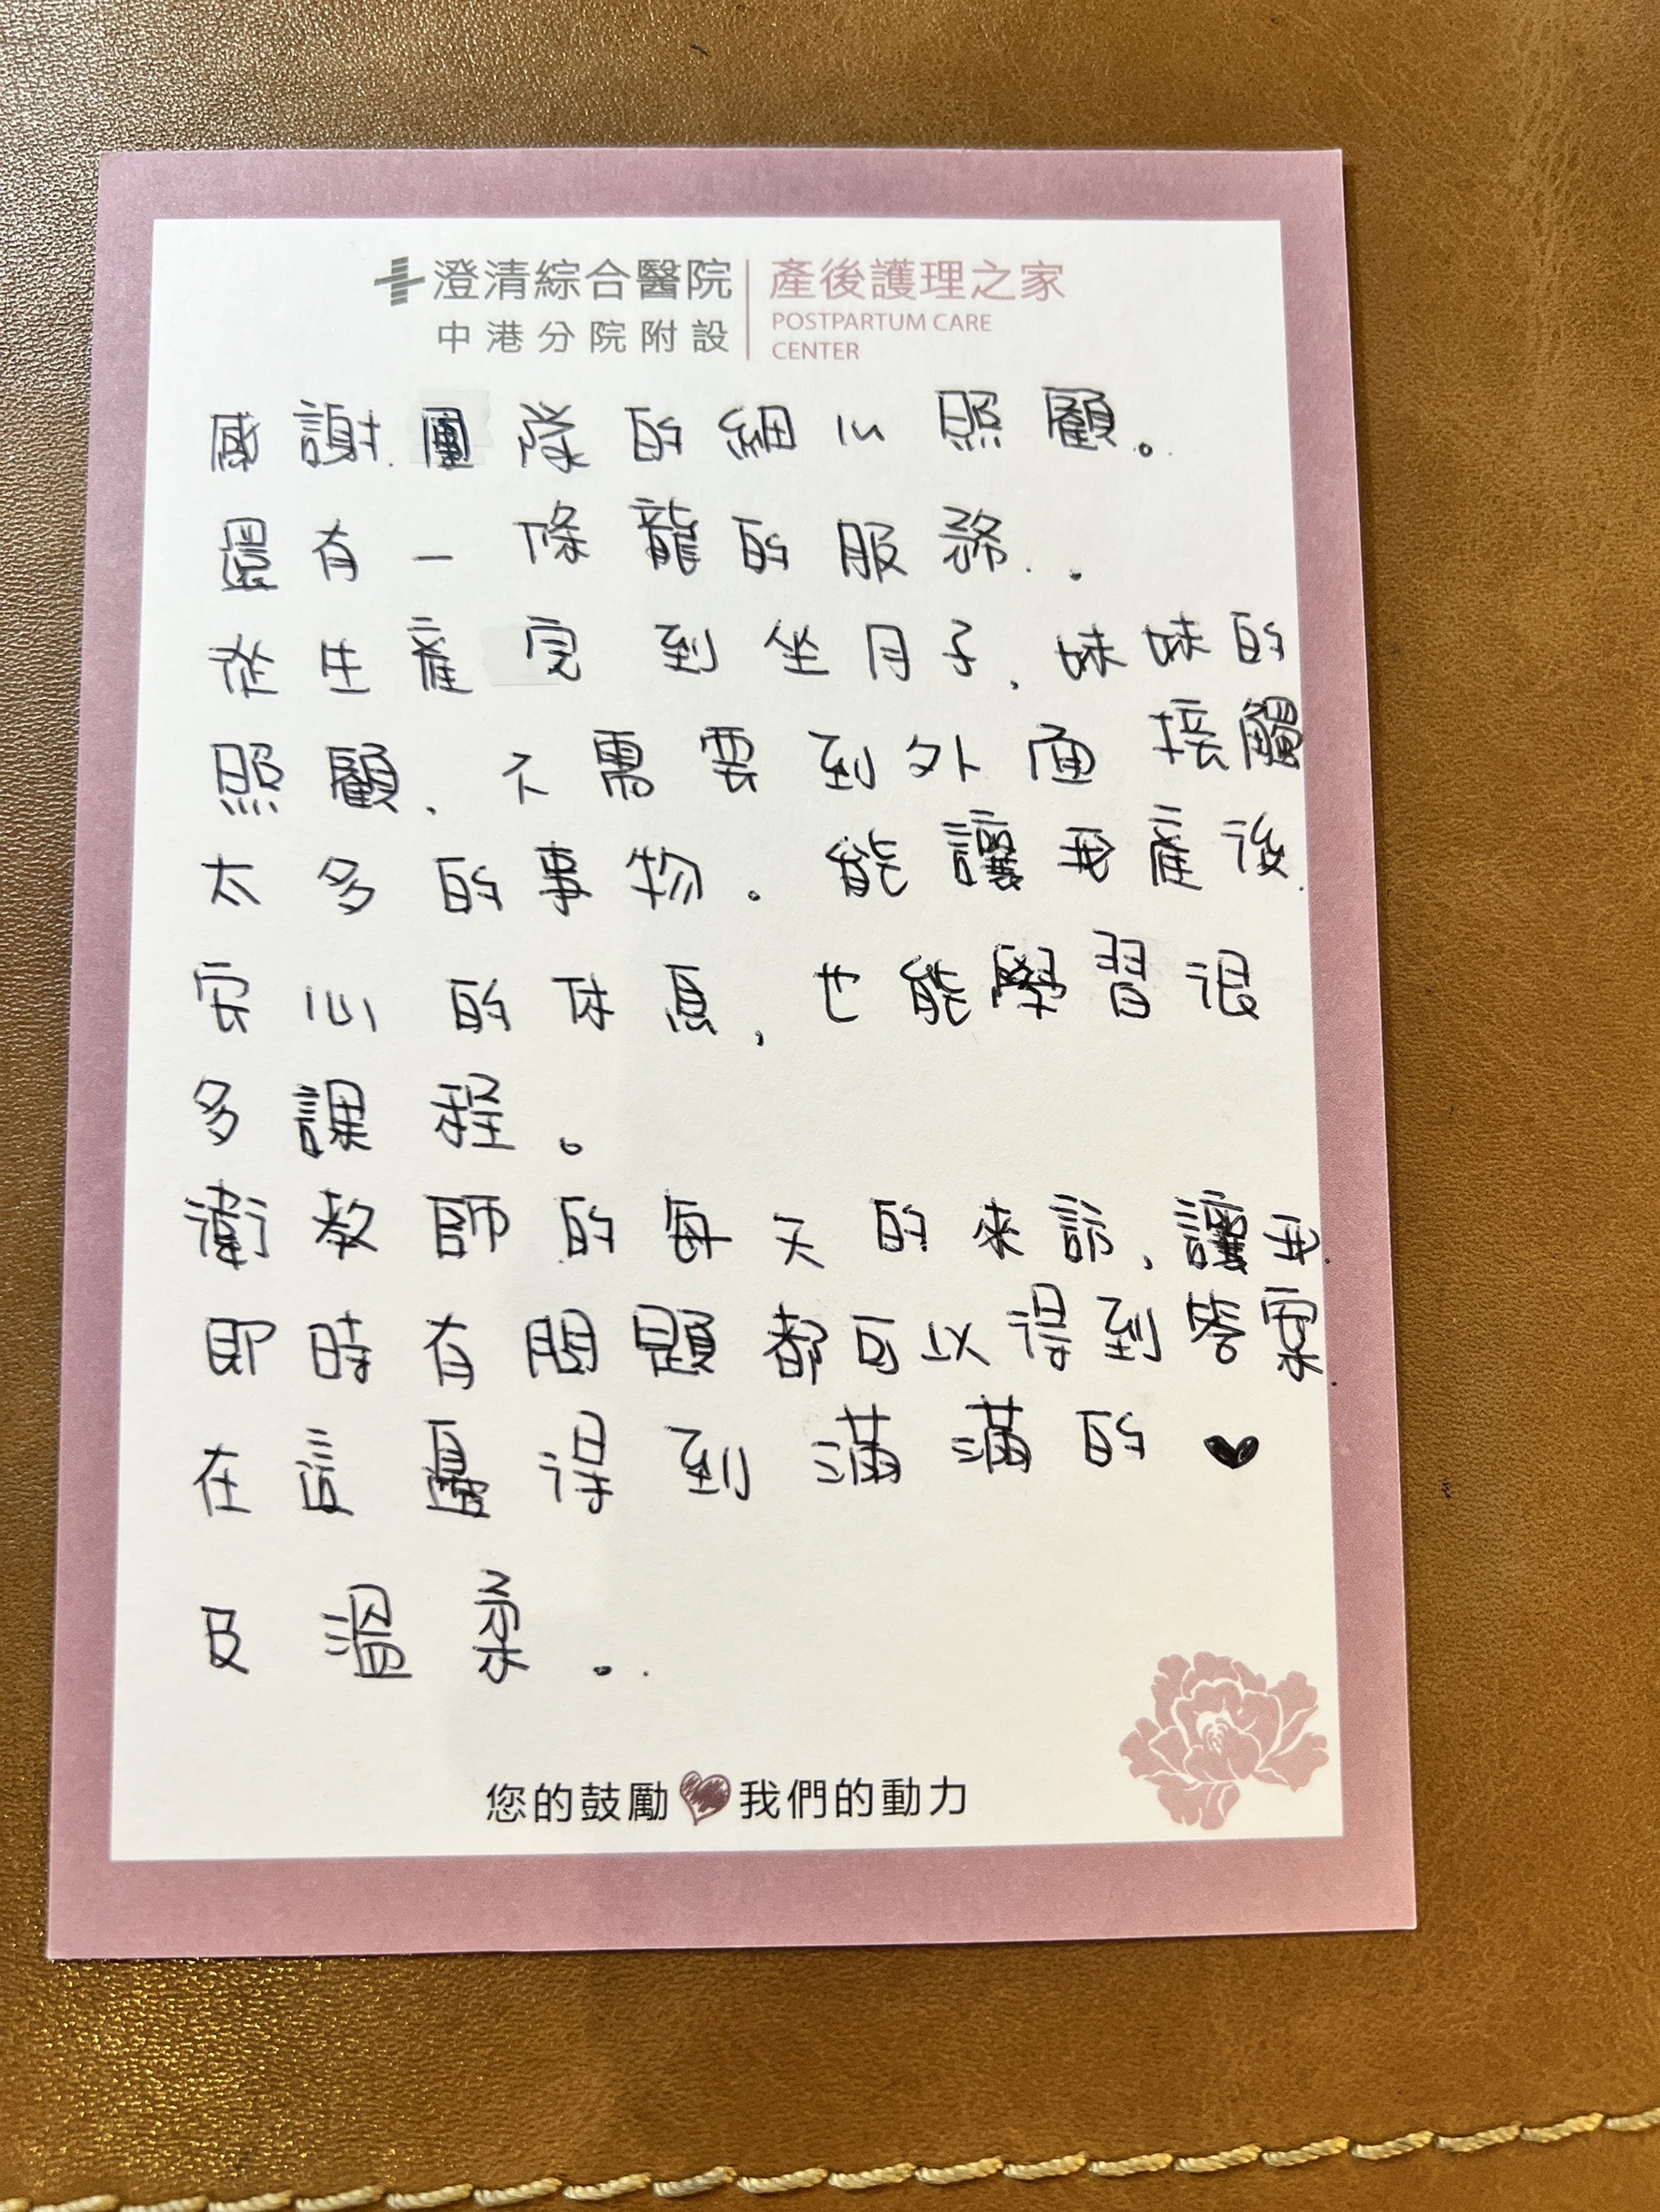 澄清綜合醫院
中港分院附設
產後護理之家
POSTPARTUM CARE
CENTER
感謝團隊的細心照顧。
還有一條龍的服務..
從生產完到坐月子,妹妹的
照顧,不需要到外面接觸
太多的事物.能讓我產後
安心的休息,也能學習很
多課程。
衛教師的每天的來訪,讓我
即時有問題都可以得到答案.
在這邊得到滿滿的♥
及溫柔..
您的鼓勵 我們的動力